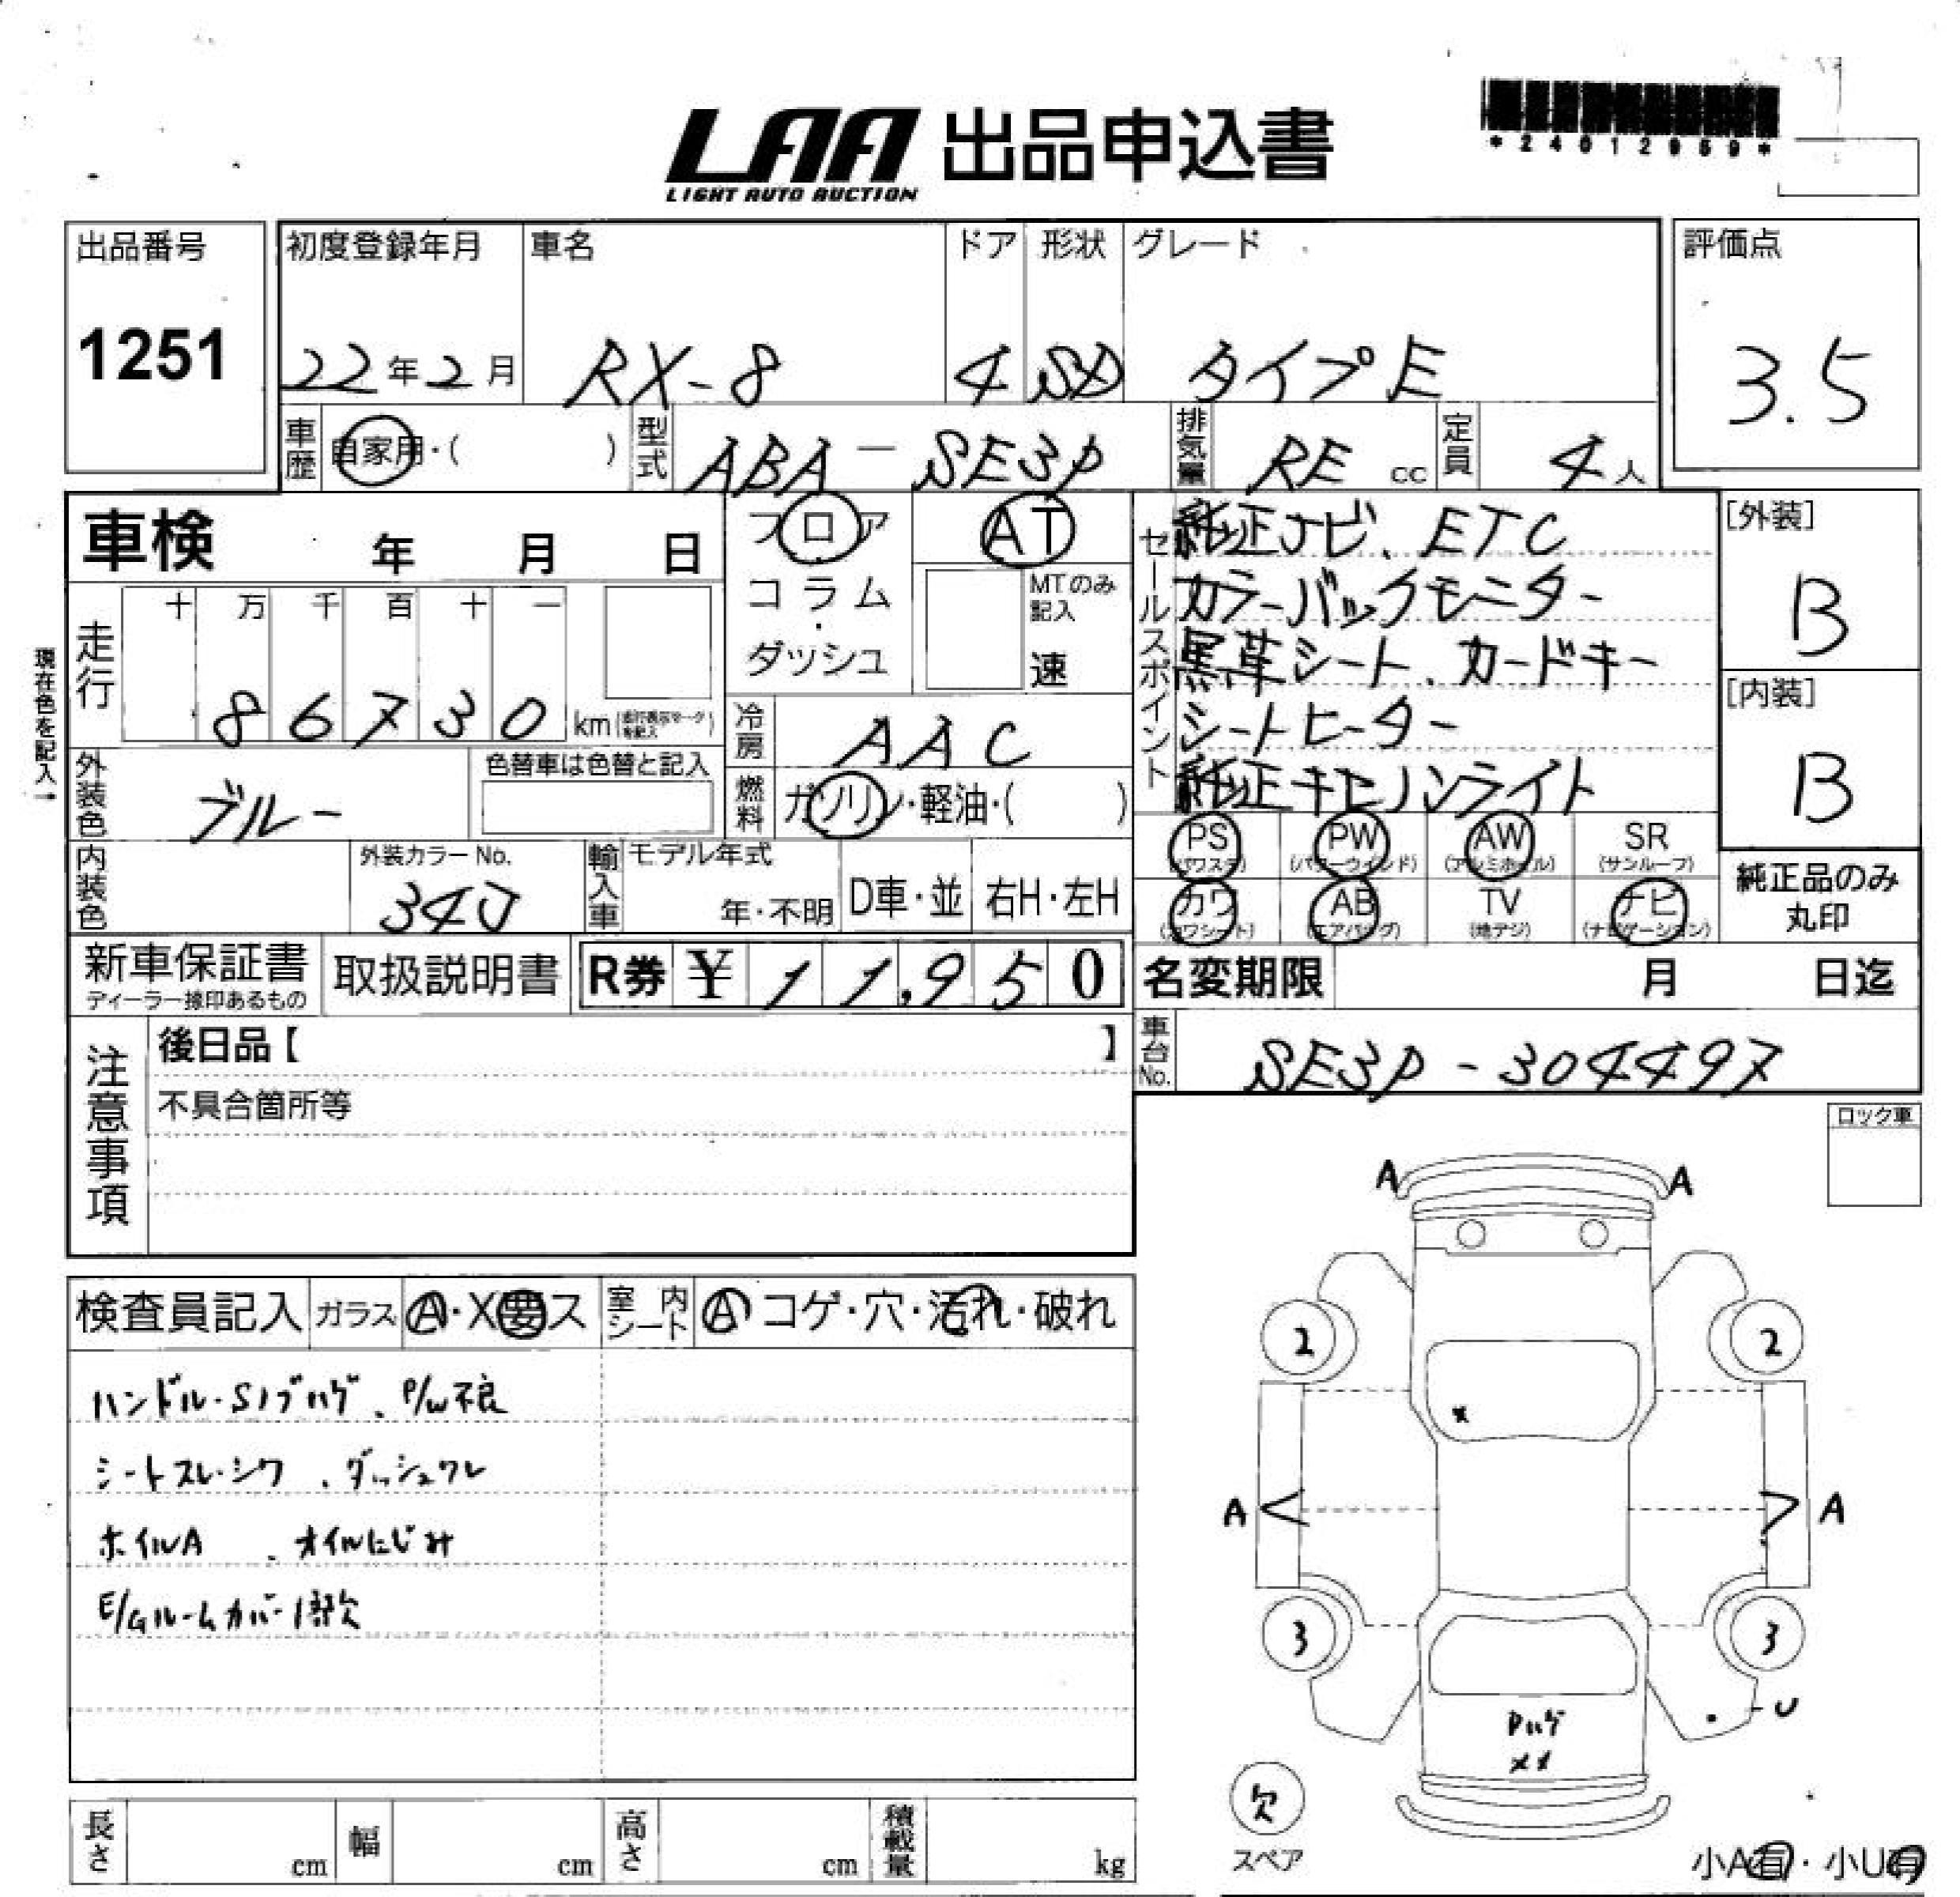 LAA 出品申込書
LIGHT AUTO AUCTION
*24012959*
出品番号
1251
初度登録年月
22年2月
車名
RX-8
ドア
4
形状
SD
グレード
タイプE
評価点
3.5
車歴
自家用・( )
型式
ABA-SE3P
排気量
RE cc
定員
4人
車検 年 月 日
フロア
コラム
・
ダッシュ
AT
MTのみ記入
速
セールスポイント
純正ナビ、ETC
カラーバックモニター
黒革シート、カードキー
シートヒーター
純正キセノンライト
[外装]
B
[内装]
B
現在色を記入→
走行
十 万 千 百 十 一
86730 km
冷房
AAC
外装色
ブルー
色替車は色替と記入
燃料
ガソリン・軽油・( )
PS (パワステ)
PW (パワーウインド)
AW (アルミホイル)
SR (サンルーフ)
カワ (カワシート)
AB (エアバッグ)
TV (地デジ)
ナビ (ナビゲーション)
純正品のみ丸印
内装色
外装カラーNo.
34J
輸入車
モデル年式
年・不明
D車・並
右H・左H
新車保証書
ディーラー捺印あるもの
取扱説明書
R券 ¥11,950
名変期限 月 日迄
車台No.
SE3P-304497
注意事項
後日品【 】
不具合箇所等
ロック車
検査員記入
ガラス
A・X要ス
室内シート
A コゲ・穴・汚れ・破れ
ハンドル・Sノブハゲ、P/W不良
シートスレ・シワ、ダッシュワレ
ホイルA、オイルにじみ
E/Gルームカバー1部欠
A A
2 2
x
A A
3 3
U
Pハゲ
xx
欠
スペア
小A有・小U有
長さ cm
幅 cm
高さ cm
積載量 kg